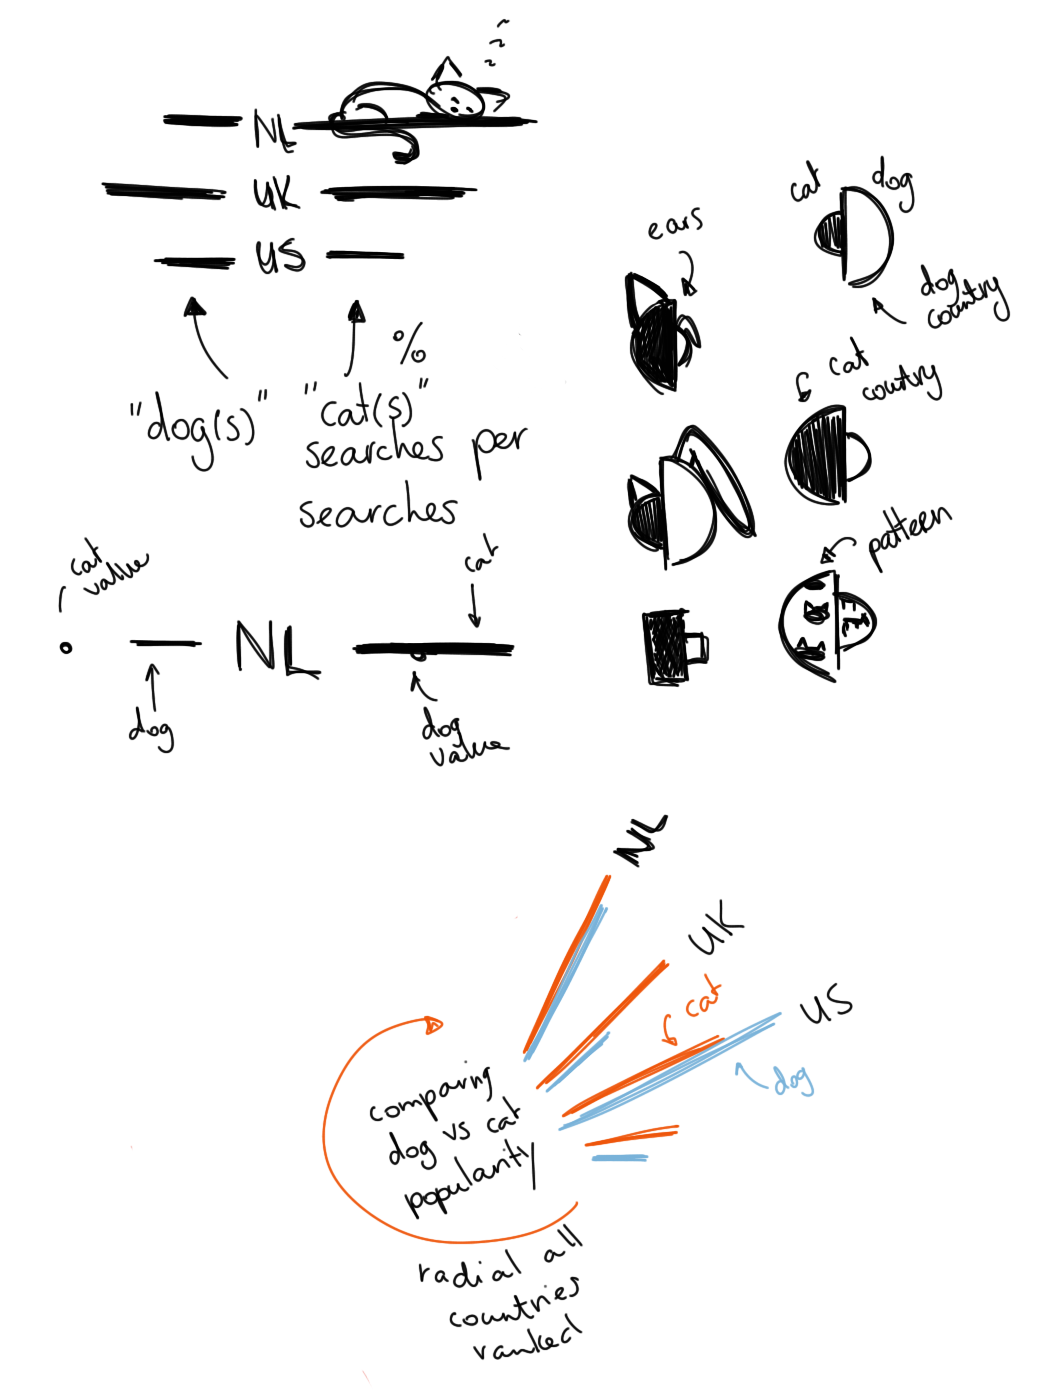 NL
UK
US
%
"dog(s)"
"cat(s)"
searches per
searches
cat
value
dog
NL
cat
dog
value
ears
cat
dog
dog
country
cat
country
pattern
NL
UK
US
cat
dog
comparing
dog vs cat
popularity
radial all
countries
ranked